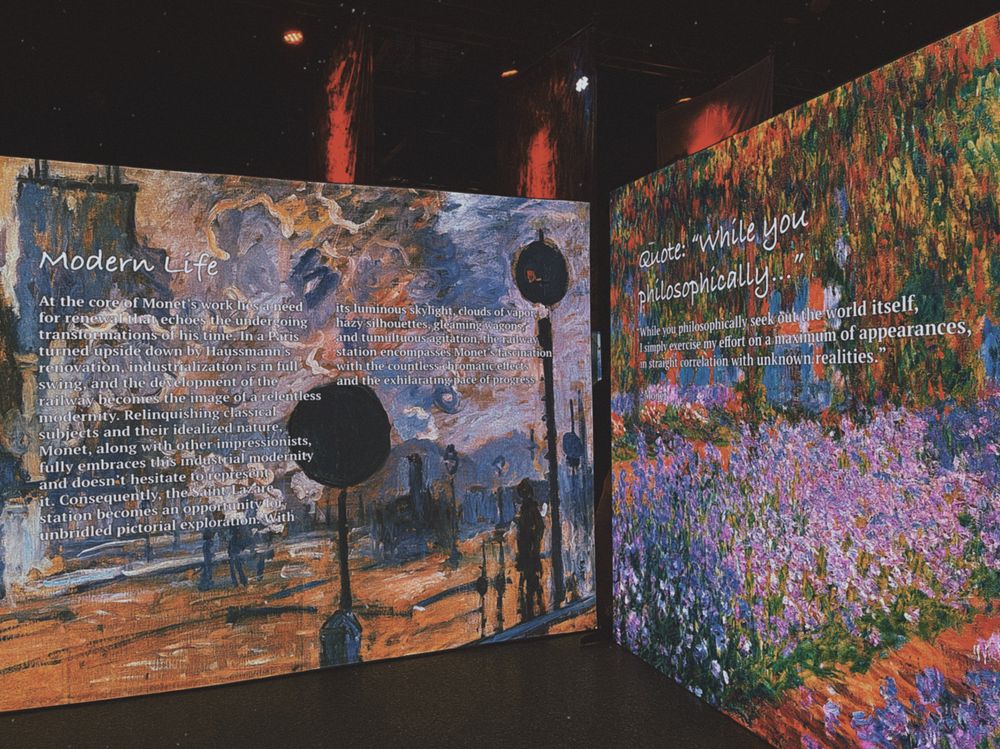 Modern Life
At the core of Monet's work lies a need
for renewal that echoes the undergoing
transformations of his time. In a Paris
turned upside down by Haussmann's
renovation, industrialization is in full
swing, and the development of the
railway becomes the image of a relentless
modernity. Relinquishing classical
subjects and their idealized nature,
Monet, along with other impressionists,
fully embraces this industrial modernity
and doesn't hesitate to represent
it. Consequently, the Saint-Lazare
station becomes an opportunity for
unbridled pictorial exploration. With
its luminous skylight, clouds of vapor,
hazy silhouettes, gleaming wagons,
and tumultuous agitation, the railway
station encompasses Monet's fascination
with the countless chromatic effects
and the exhilarating pace of progress
Quote: "While you
philosophically..."
While you philosophically seek out the world itself,
I simply exercise my effort on a maximum of appearances,
in straight correlation with unknown realities."
Monet